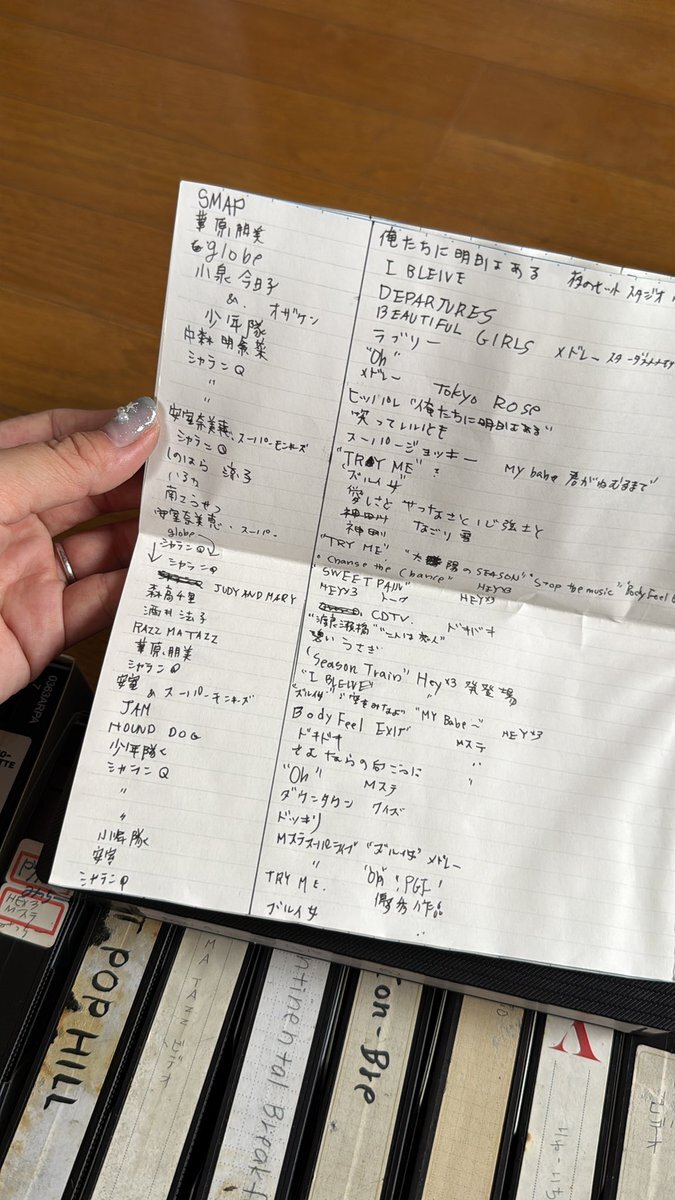 SMAP
華原朋美
globe
小泉今日子
&. オザケン
少年隊
中森明菜
シャランQ
〃
〃
安室奈美恵、スーパーモンキーズ
シャランQ
しのはら涼子
いるか
南こうせつ
安室奈美恵、スーパー
globe
シャランQ
シャランQ
JUDY AND MARY
森高千里
酒井法子
RAZZ MA TAZZ
華原朋美
シャランQ
安室 & スーパーモンキーズ
JAM
HOUND DOG
少年隊
シャランQ
〃
〃
少年隊
安室
シャランQ
俺たちに明日はある
スタジオ
I BLEIVE
DEPARTURES
BEAUTIFUL GIRLS
メドレー
ラブリー
"Oh"
メドレー TOKYO ROSE
ヒッパレ "俺たちに明日はある"
笑っていいとも
スーパージョッキー
"TRY ME" My babe 君がねむるまで
"ズルイ女"
愛しさとせつなさと心強さと
神田川 なごり雪
"TRY ME" "太陽のSEASON" "Stop the music" Body Feel E
"Chanse the Chance"
"SWEET PAIN" HEY×3
HEY×3 トーク HEY×3
CDTV. ドキドキ
"渡良瀬橋"
碧いうさぎ
(Season Train" Hey×3 発登場
"I BLEIVE" 〃
"ズルイ女" "空をみなよ" "MY Babe~" HEY×3
Body Feel EXIT Mステ
ドキドキ 〃
"Oh" Mステ
ダウンタウン クイズ
ドッキリ
Mステスーパーライブ "ズルイ女" メドレー
〃
TRY ME.
ズルイ女
HEY×3
Mステ
POP HILL
MA TAZZ
ntinental Breakf